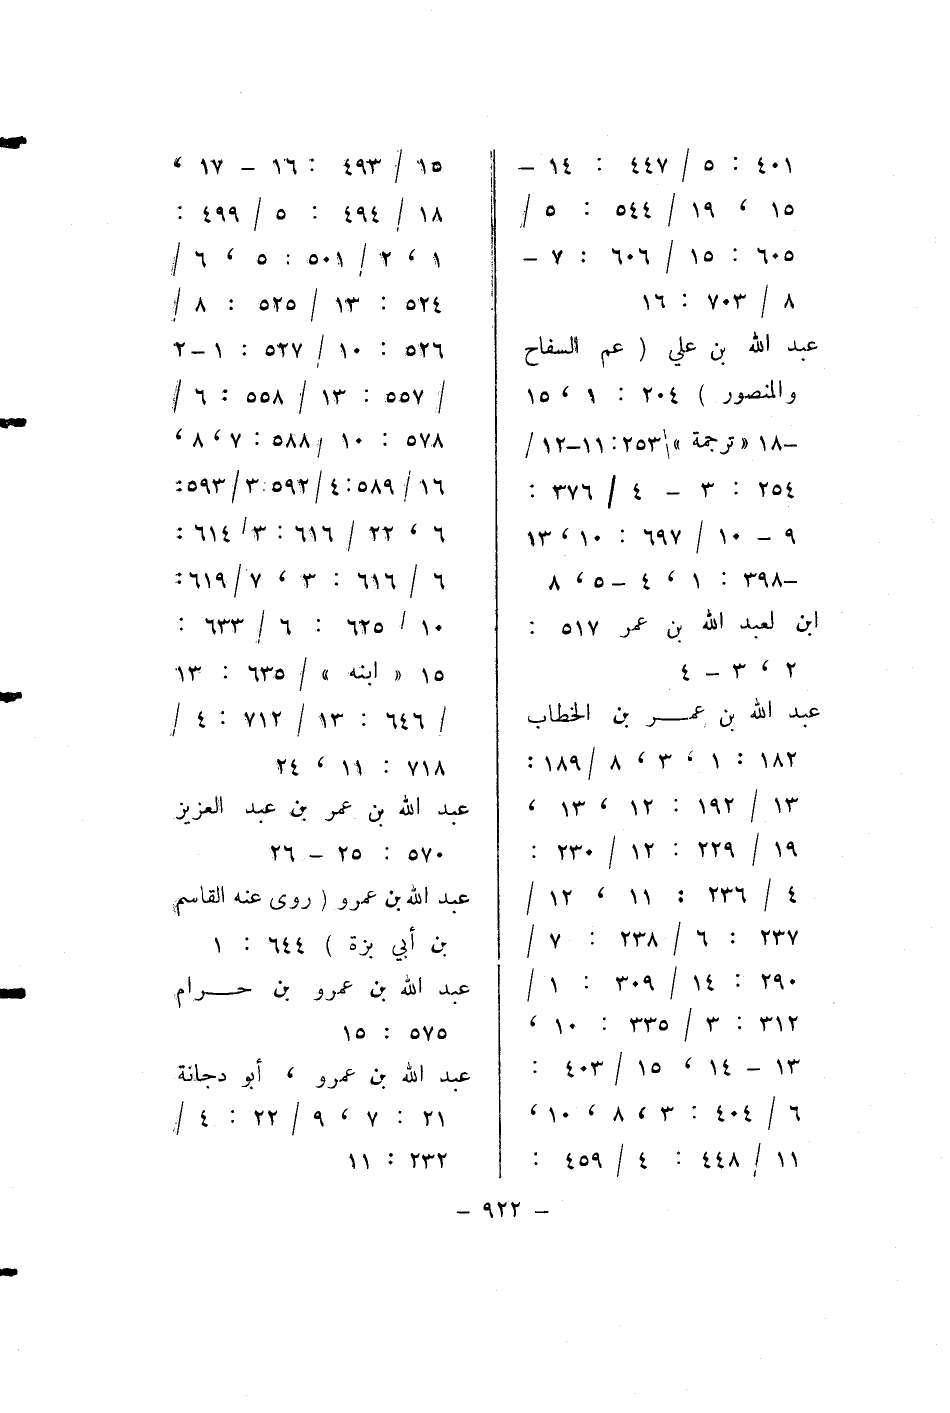 ٤٠١ : ٥ / ٤٤٧ : ١٤ –
١٥ ، ١٩ / ٥٤٤ : ٥ /
٦٠٥ : ١٥ / ٦٠٦ : ٧ –
٨ / ٧٠٣ : ١٦
عبد الله بن علي ( عم السفاح
والمنصور ) ٢٠٤ : ١ ، ١٥
–١٨ «ترجمة»\ ٢٥٣: ١١–١٢ /
٢٥٤ : ٣ – ٤ / ٣٧٦ :
٩ – ١٠ / ٦٩٧ : ١٠ ، ١٣
–٣٩٨ : ١ ، ٤ –٥ ، ٨
ابن لعبد الله بن عمر ٥١٧ :
٢ ، ٣ – ٤
عبد الله بن عمر بن الخطاب
١٨٢ : ١ ، ٣ ، ٨ / ١٨٩ :
١٣ / ١٩٢ : ١٢ ، ١٣ ،
١٩ / ٢٢٩ : ١٢ / ٢٣٠ :
٤ / ٢٣٦ : ١١ ، ١٢ /
٢٣٧ : ٦ / ٢٣٨ : ٧ /
٢٩٠ : ١٤ / ٣٠٩ : ١ /
٣١٢ : ٣ / ٣٣٥ : ١٠ ،
١٣ – ١٤ ، ١٥ / ٤٠٣ :
٦ / ٤٠٤ : ٣ ، ٨ ، ١٠ ،
١١ / ٤٤٨ : ٤ / ٤٥٩ :
١٥ / ٤٩٣ : ١٦ – ١٧ ،
١٨ / ٤٩٤ : ٥ / ٤٩٩ :
١ ، ٢ / ٥٠١ : ٥ ، ٦ /
٥٢٤ : ١٣ / ٥٢٥ : ٨ /
٥٢٦ : ١٠ / ٥٢٧ : ١–٢
/ ٥٥٧ : ١٣ / ٥٥٨ : ٦ /
٥٧٨ : ١٠ / ٥٨٨ : ٧ ، ٨ ،
١٦ / ٥٨٩ : ٤ / ٥٩٢ : ٣ / ٥٩٣ :
٦ ، ٢٢ / ٦١٦ : ٣ / ٦١٤ :
٦ / ٦١٦ : ٣ ، ٧ / ٦١٩ :
١٠ / ٦٢٥ : ٦ / ٦٣٣ :
١٥ « ابنه » / ٦٣٥ : ١٣
/ ٦٤٦ : ١٣ / ٧١٢ : ٤ /
٧١٨ : ١١ ، ٢٤
عبد الله بن عمر بن عبد العزيز
٥٧٠ : ٢٥ – ٢٦
عبد الله بن عمرو ( روى عنه القاسم
بن أبي بزة ) ٦٤٤ : ١
عبد الله بن عمرو بن حرام
٥٧٥ : ١٥
عبد الله بن عمرو ، أبو دجانة
٢١ : ٧ ، ٩ / ٢٢ : ٤ /
٢٣٢ : ١١
– ٩٢٢ –